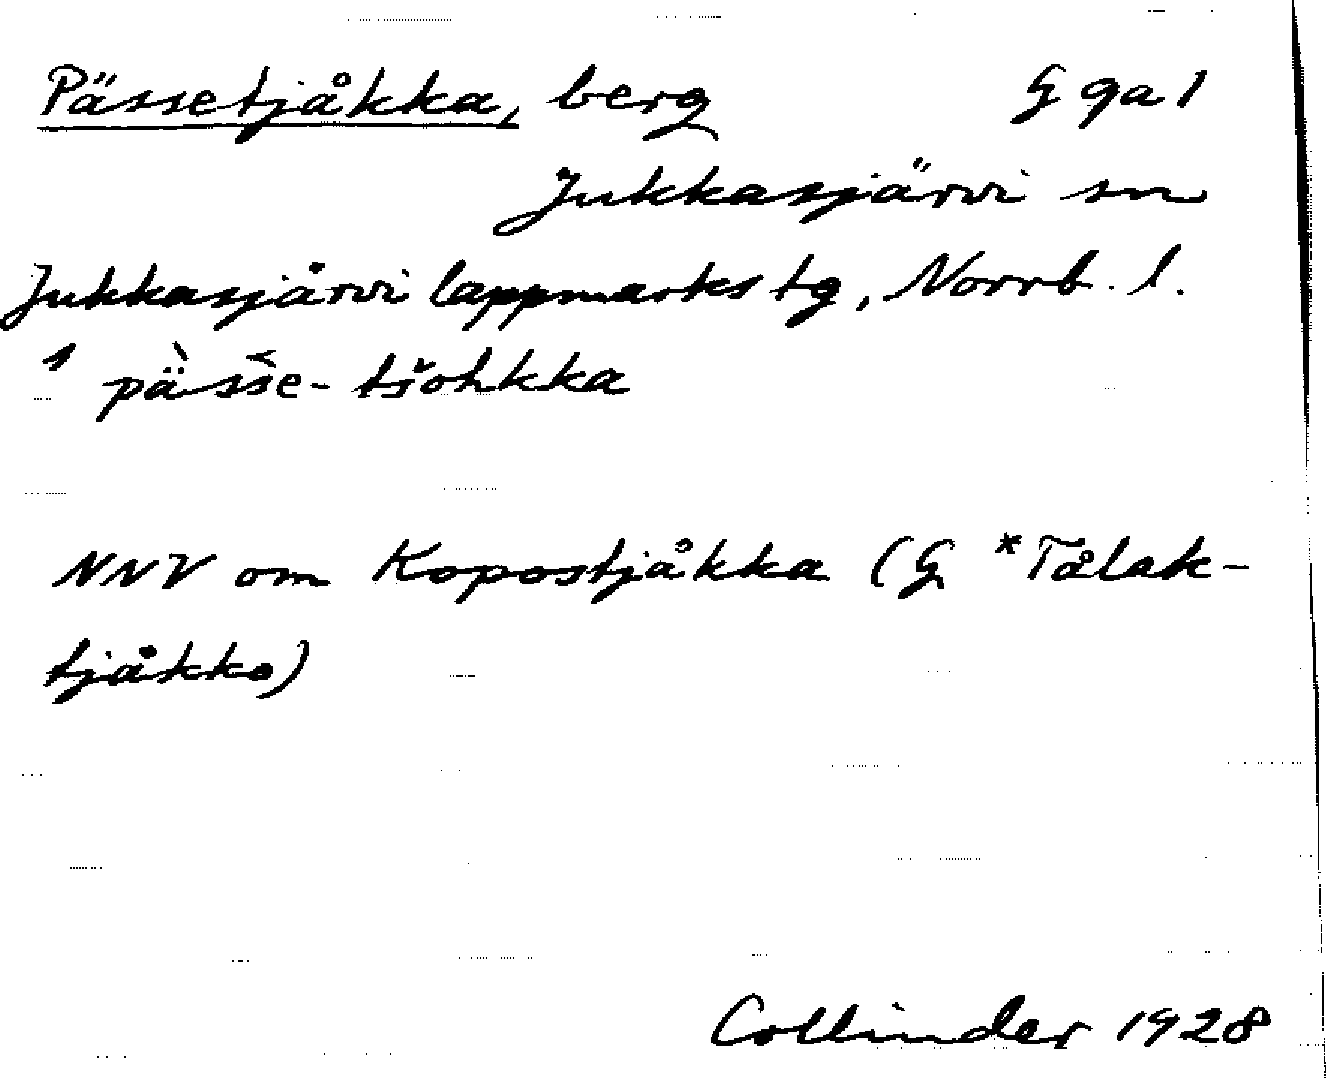 Pässetjåkka, berg G 9a1
Jukkasjärvi sn
Jukkasjärvi lappmarks tg, Norrb. l.
1 pä̀sse̬- tšohkka
NNV om Kopostjåkka (G *Tålak-
tjåkko)
Collinder 1928